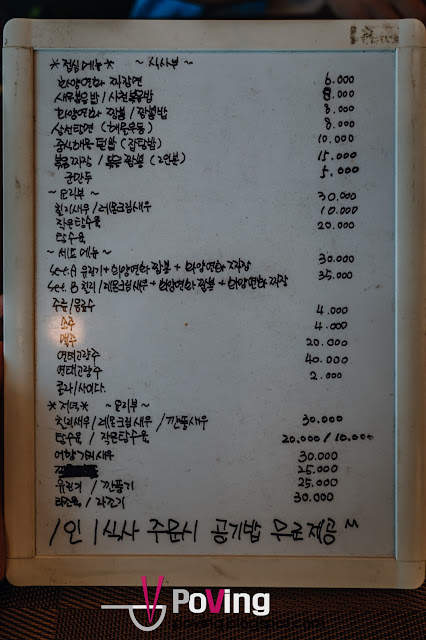 *점심메뉴* ~ 식사부 ~
화양연화 짜장면 6.000
새우볶음밥 / 사천볶음밥 8.000
화양연화 짬뽕 / 짬뽕밥 8.000
삼선탕면 (해물우동) 8.000
중식해물덮밥 (잡탕밥) 10.000
볶음짜장 / 볶음짬뽕 (2인분) 15.000
군만두 5.000
~ 요리부 ~
칠리새우 / 레몬크림새우 30.000
작은탕수육 10.000
탕수육 20.000
~ 세트메뉴 ~
set. A 유린기 + 화양연화 짬뽕 + 화양연화 짜장 30.000
set. B 칠리 / 레몬크림새우 + 화양연화 짬뽕 + 화양연화 짜장 35.000
주류/음료수
소주 4.000
맥주 4.000
연태고량주 20.000
연태고량주 40.000
콜라/사이다. 2.000
*저녁* ~ 요리부 ~
칠리새우 / 레몬크림새우 / 깐풍새우 30.000
탕수육 / 작은탕수육 20.000 / 10.000
어향가지새우 30.000
25.000
유린기 / 깐풍기 25.000
라조기 30.000
1인 1식사 주문시 공기밥 무료제공 ^^
PoVing